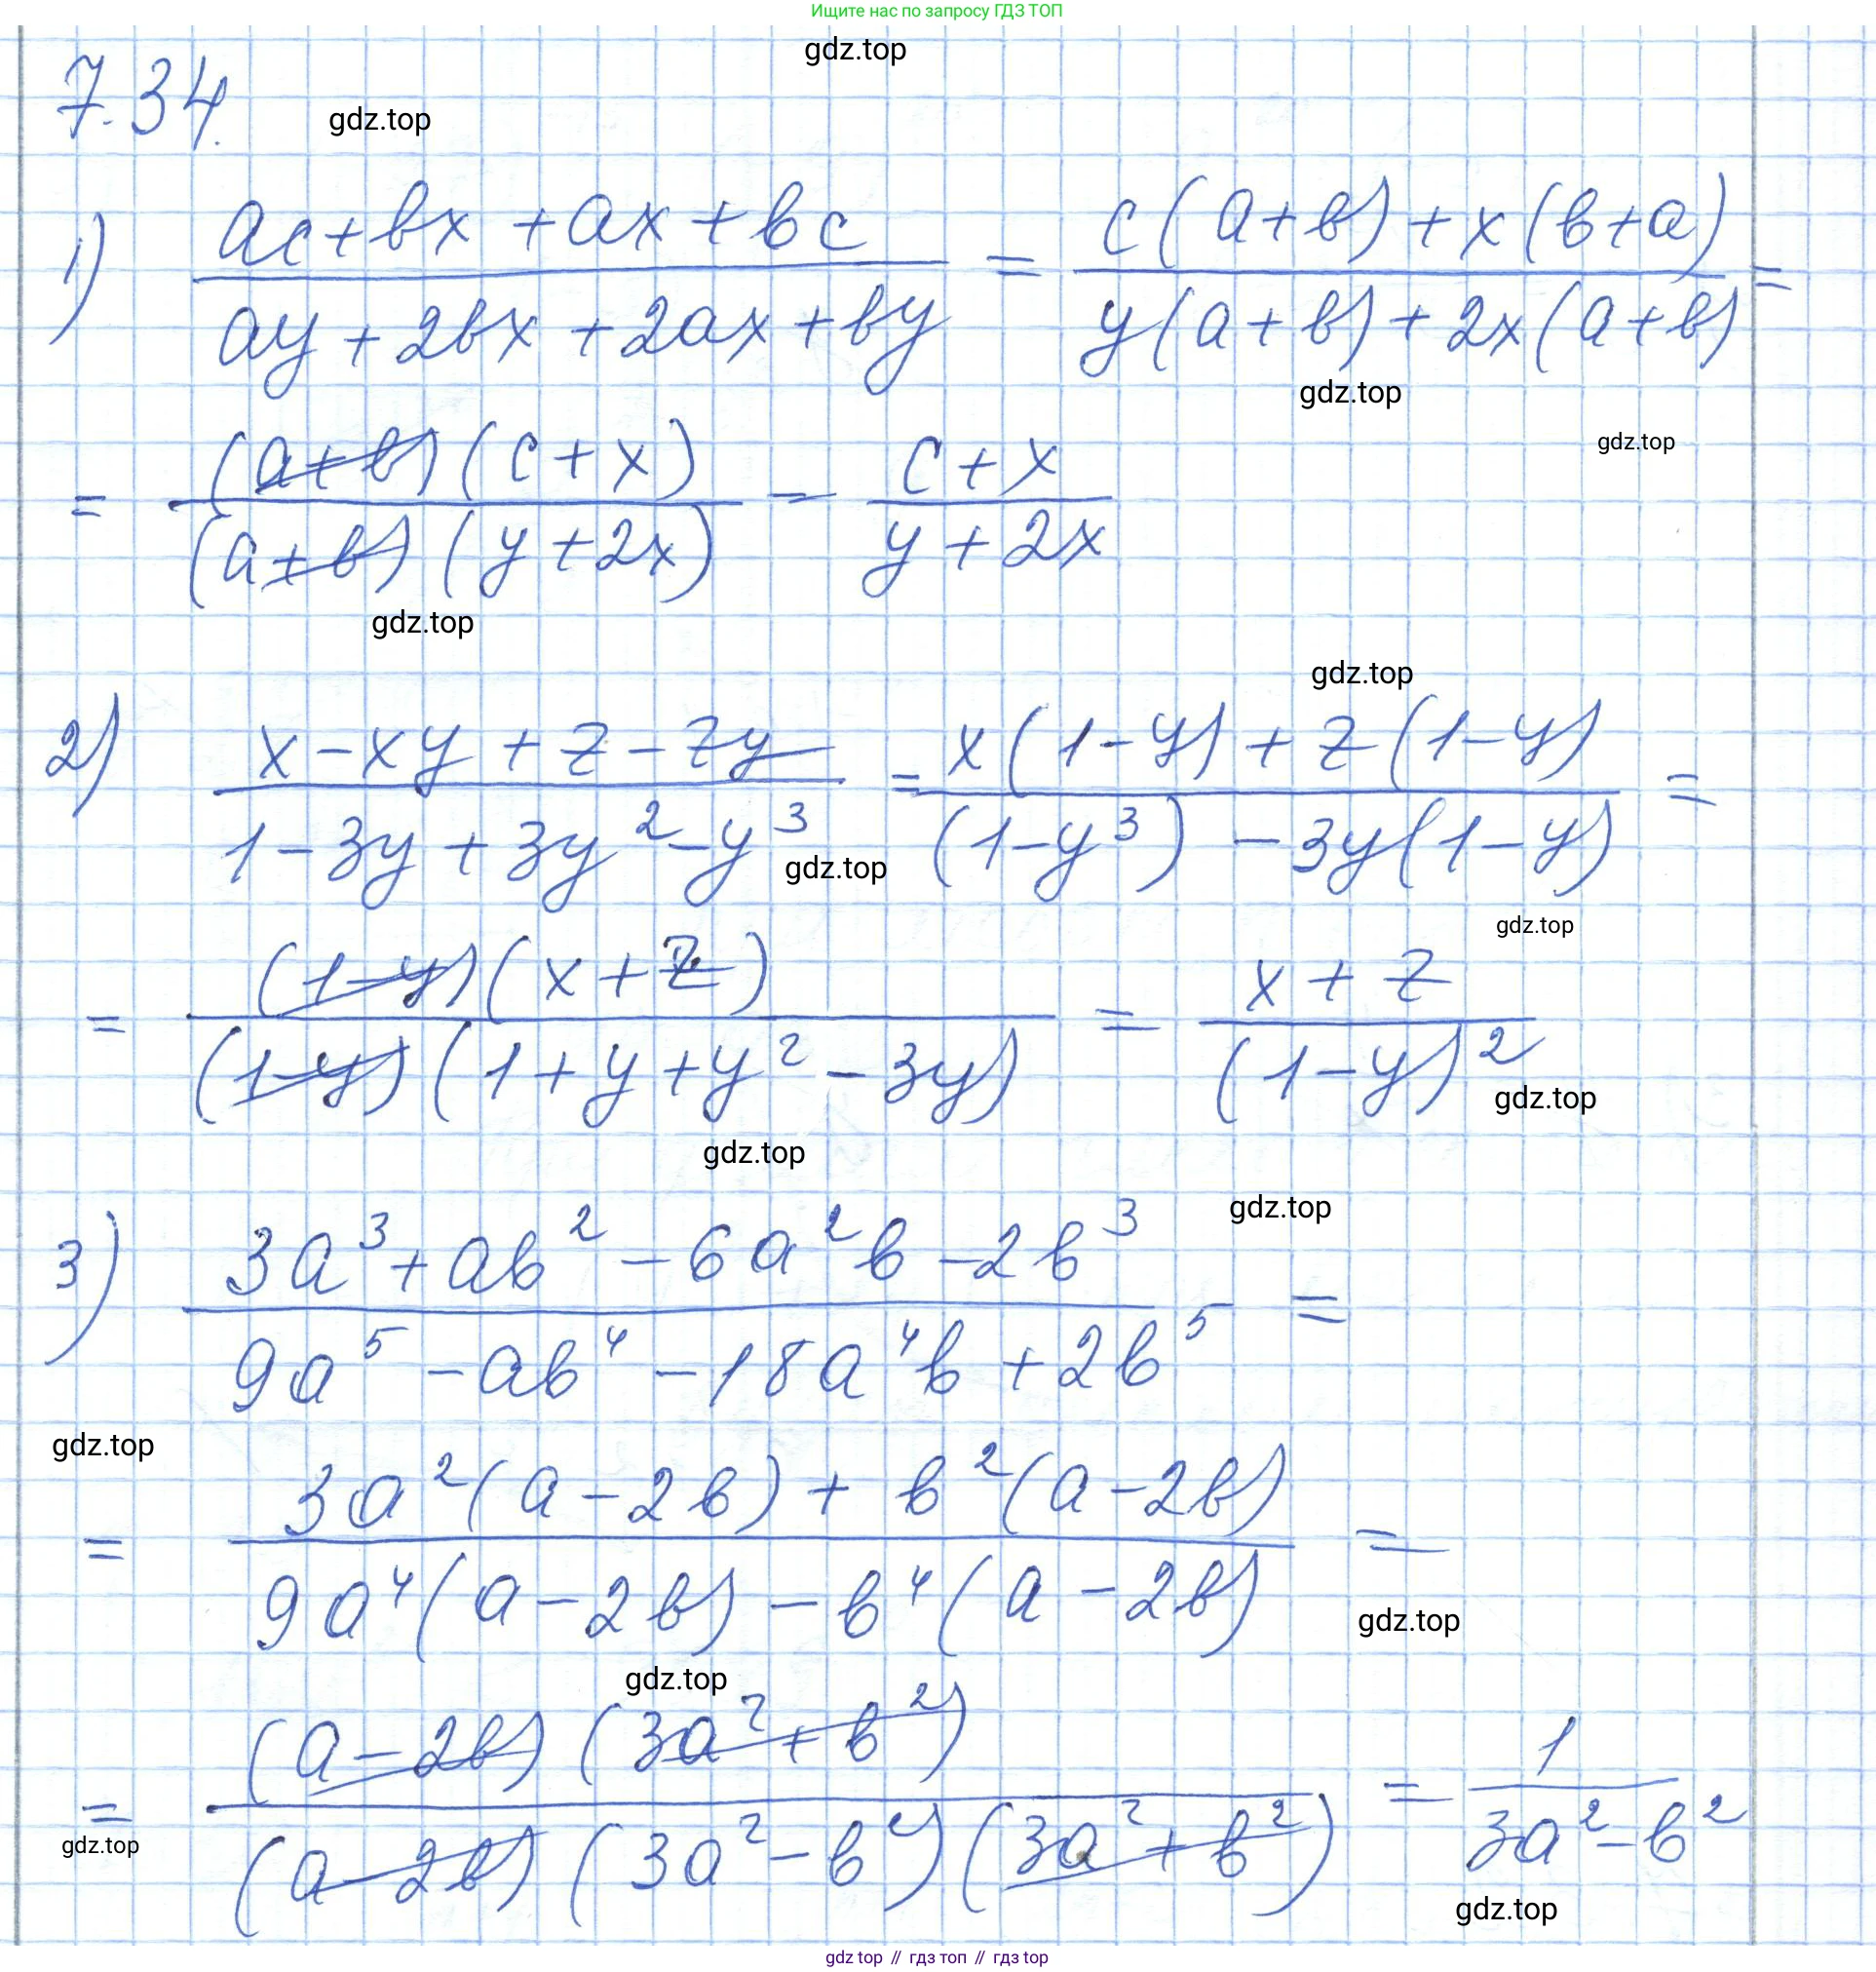 Ищите нас по запросу ГДЗ ТОП
gdz.top
7.34.
gdz.top
1) (ac+bx+ax+bc)/(ay+2bx+2ax+by) = (c(a+b)+x(b+a))/(y(a+b)+2x(a+b)) =
gdz.top
gdz.top
= ((a+b)(c+x))/((a+b)(y+2x)) = (c+x)/(y+2x)
gdz.top
gdz.top
2) (x-xy+z-zy)/(1-3y+3y²-y³) = (x(1-y)+z(1-y))/((1-y³)-3y(1-y)) =
gdz.top
gdz.top
= ((1-y)(x+z))/((1-y)(1+y+y²-3y)) = (x+z)/(1-y)²
gdz.top
gdz.top
gdz.top
3) (3a³+ab²-6a²b-2b³)/(9a⁵-ab⁴-18a⁴b+2b⁵) =
gdz.top
= (3a²(a-2b)+b²(a-2b))/(9a⁴(a-2b)-b⁴(a-2b)) =
gdz.top
gdz.top
= ((a-2b)(3a²+b²))/((a-2b)(3a²-b²)(3a²+b²)) = 1/(3a²-b²)
gdz.top
gdz.top
gdz top // гдз топ // гдз top